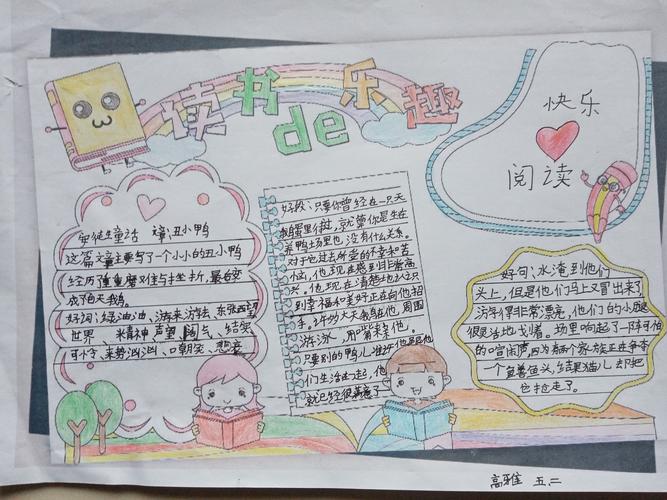 读书de乐趣
快乐
阅读
安徒生童话 文章:丑小鸭
这篇文章主要写了一个小小的丑小鸭
经历重重磨难与挫折,最后变
成了白天鹅。
好词:绿油油、游来游去、东张西望
世界、精神、声望、阔气、结笑
可小了、来势汹汹、嘲笑、悲哀
好段、只要你曾经在一只天
鹅蛋里待过,就算你是生在
养鸭场里也,没有什么关系。
对于他过去所受的不幸和苦
恼,他现在感到非常高
兴。他现在清楚地认识
到幸福和美好正在向他招
手。许多大天鹅在他周围
游泳,用嘴来亲他。
只要别的鸭儿准许他跟他
们生活在一起,他
就已经很满意了
好句:水淹到他们
头上,但是他们马上又冒出来了
游得非常漂亮,他们的小腿
很灵活地划着。场里响起了一阵可怕
的喧闹声,因为有两个家族正在争夺
一个鱼头,结果猫儿却把
它抢走了。
高雅 五.二